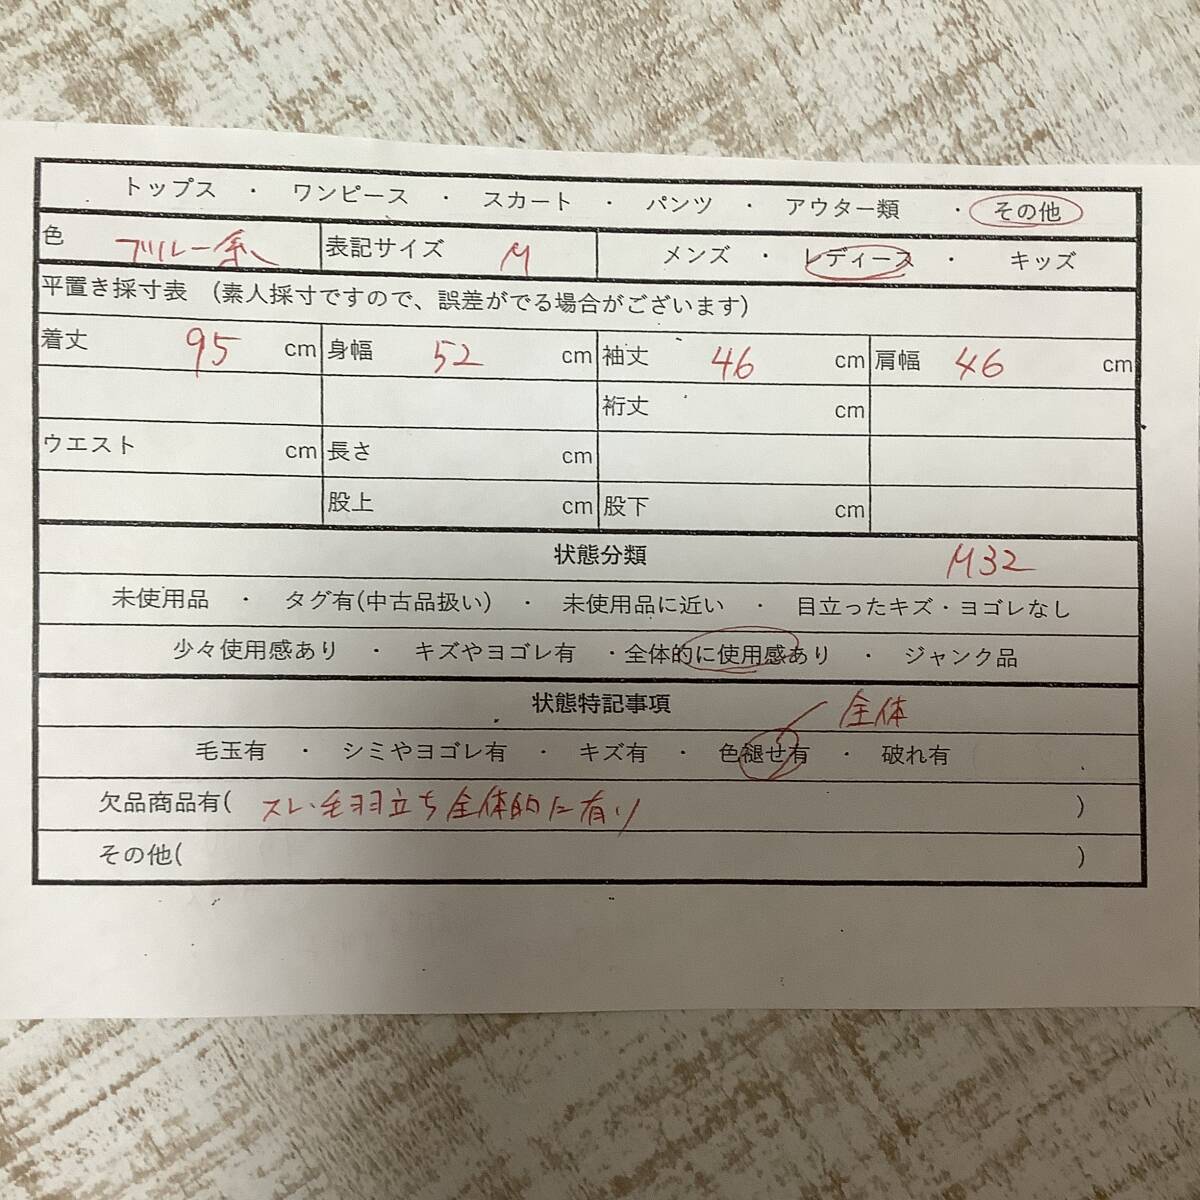 トップス ・ ワンピース ・ スカート ・ パンツ ・ アウター類 ・ その他
色 ブルー系 表記サイズ M メンズ ・ レディース ・ キッズ
平置き採寸表 (素人採寸ですので、誤差がでる場合がございます)
着丈 95 cm 身幅 52 cm 袖丈 46 cm 肩幅 46 cm
裄丈 cm
ウエスト cm 長さ cm
股上 cm 股下 cm
状態分類 M32
未使用品 ・ タグ有(中古品扱い) ・ 未使用品に近い ・ 目立ったキズ・ヨゴレなし
少々使用感あり ・ キズやヨゴレ有 ・全体的に使用感あり ・ ジャンク品
状態特記事項 全体
毛玉有 ・ シミやヨゴレ有 ・ キズ有 ・ 色褪せ有 ・ 破れ有
欠品商品有( スレ、毛羽立ち全体的に有り )
その他( )